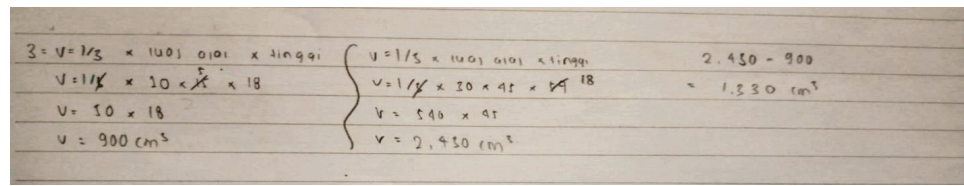 3 = V = 1/3 × luas alas × tinggi
V = 1/3 × 10 × 15 5 × 18
V = 50 × 18
V = 900 cm³
V = 1/3 × luas alas × tinggi
V = 1/3 × 30 × 45 × 54 18
V = 540 × 45
V = 2.430 cm³
2.430 - 900
= 1.330 cm³